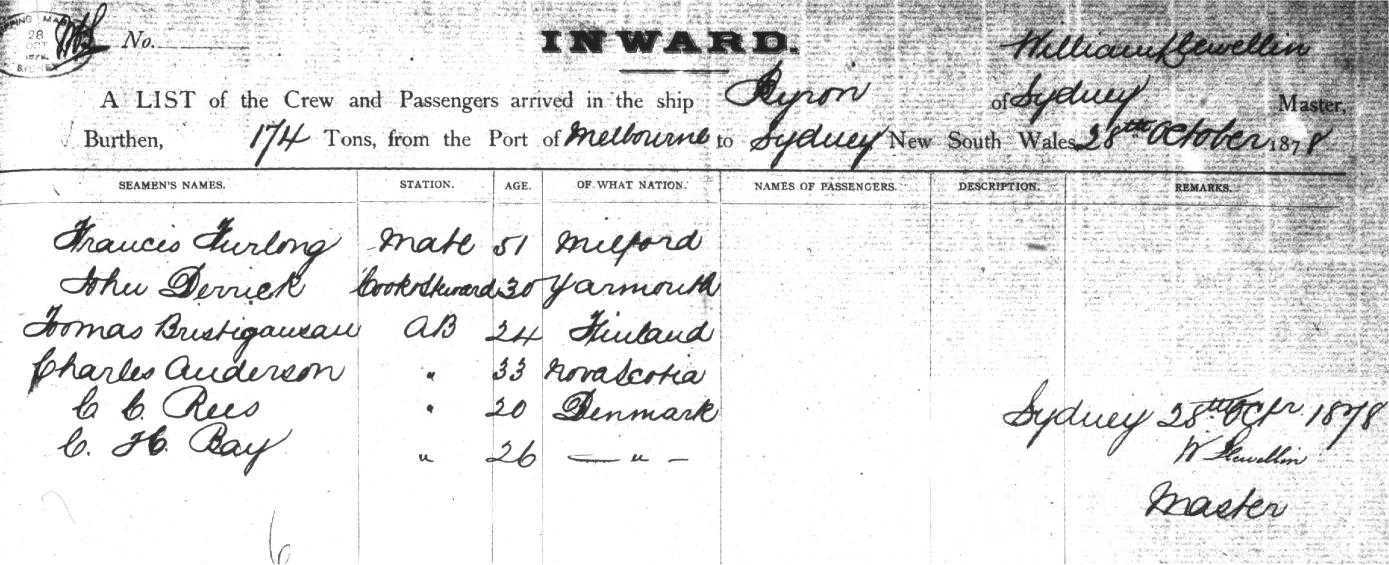 28
OCT
No.
INWARD.
William Llewellin
A LIST of the Crew and Passengers arrived in the ship Byron of Sydney Master,
Burthen, 174 Tons, from the Port of Melbourne to Sydney New South Wales 28th October 1878
SEAMEN'S NAMES. STATION. AGE. OF WHAT NATION. NAMES OF PASSENGERS. DESCRIPTION. REMARKS.
Francis Furlong Mate 51 Milford
John Derrick Cook & Steward 30 Yarmouth
Tomas AB 24 Finland
Charles Anderson " 33 Nova Scotia
C C. Rees " 20 Denmark
C. H. Bay " 26 — " —
Sydney 28th Octr 1878
W Llewellin
Master
6